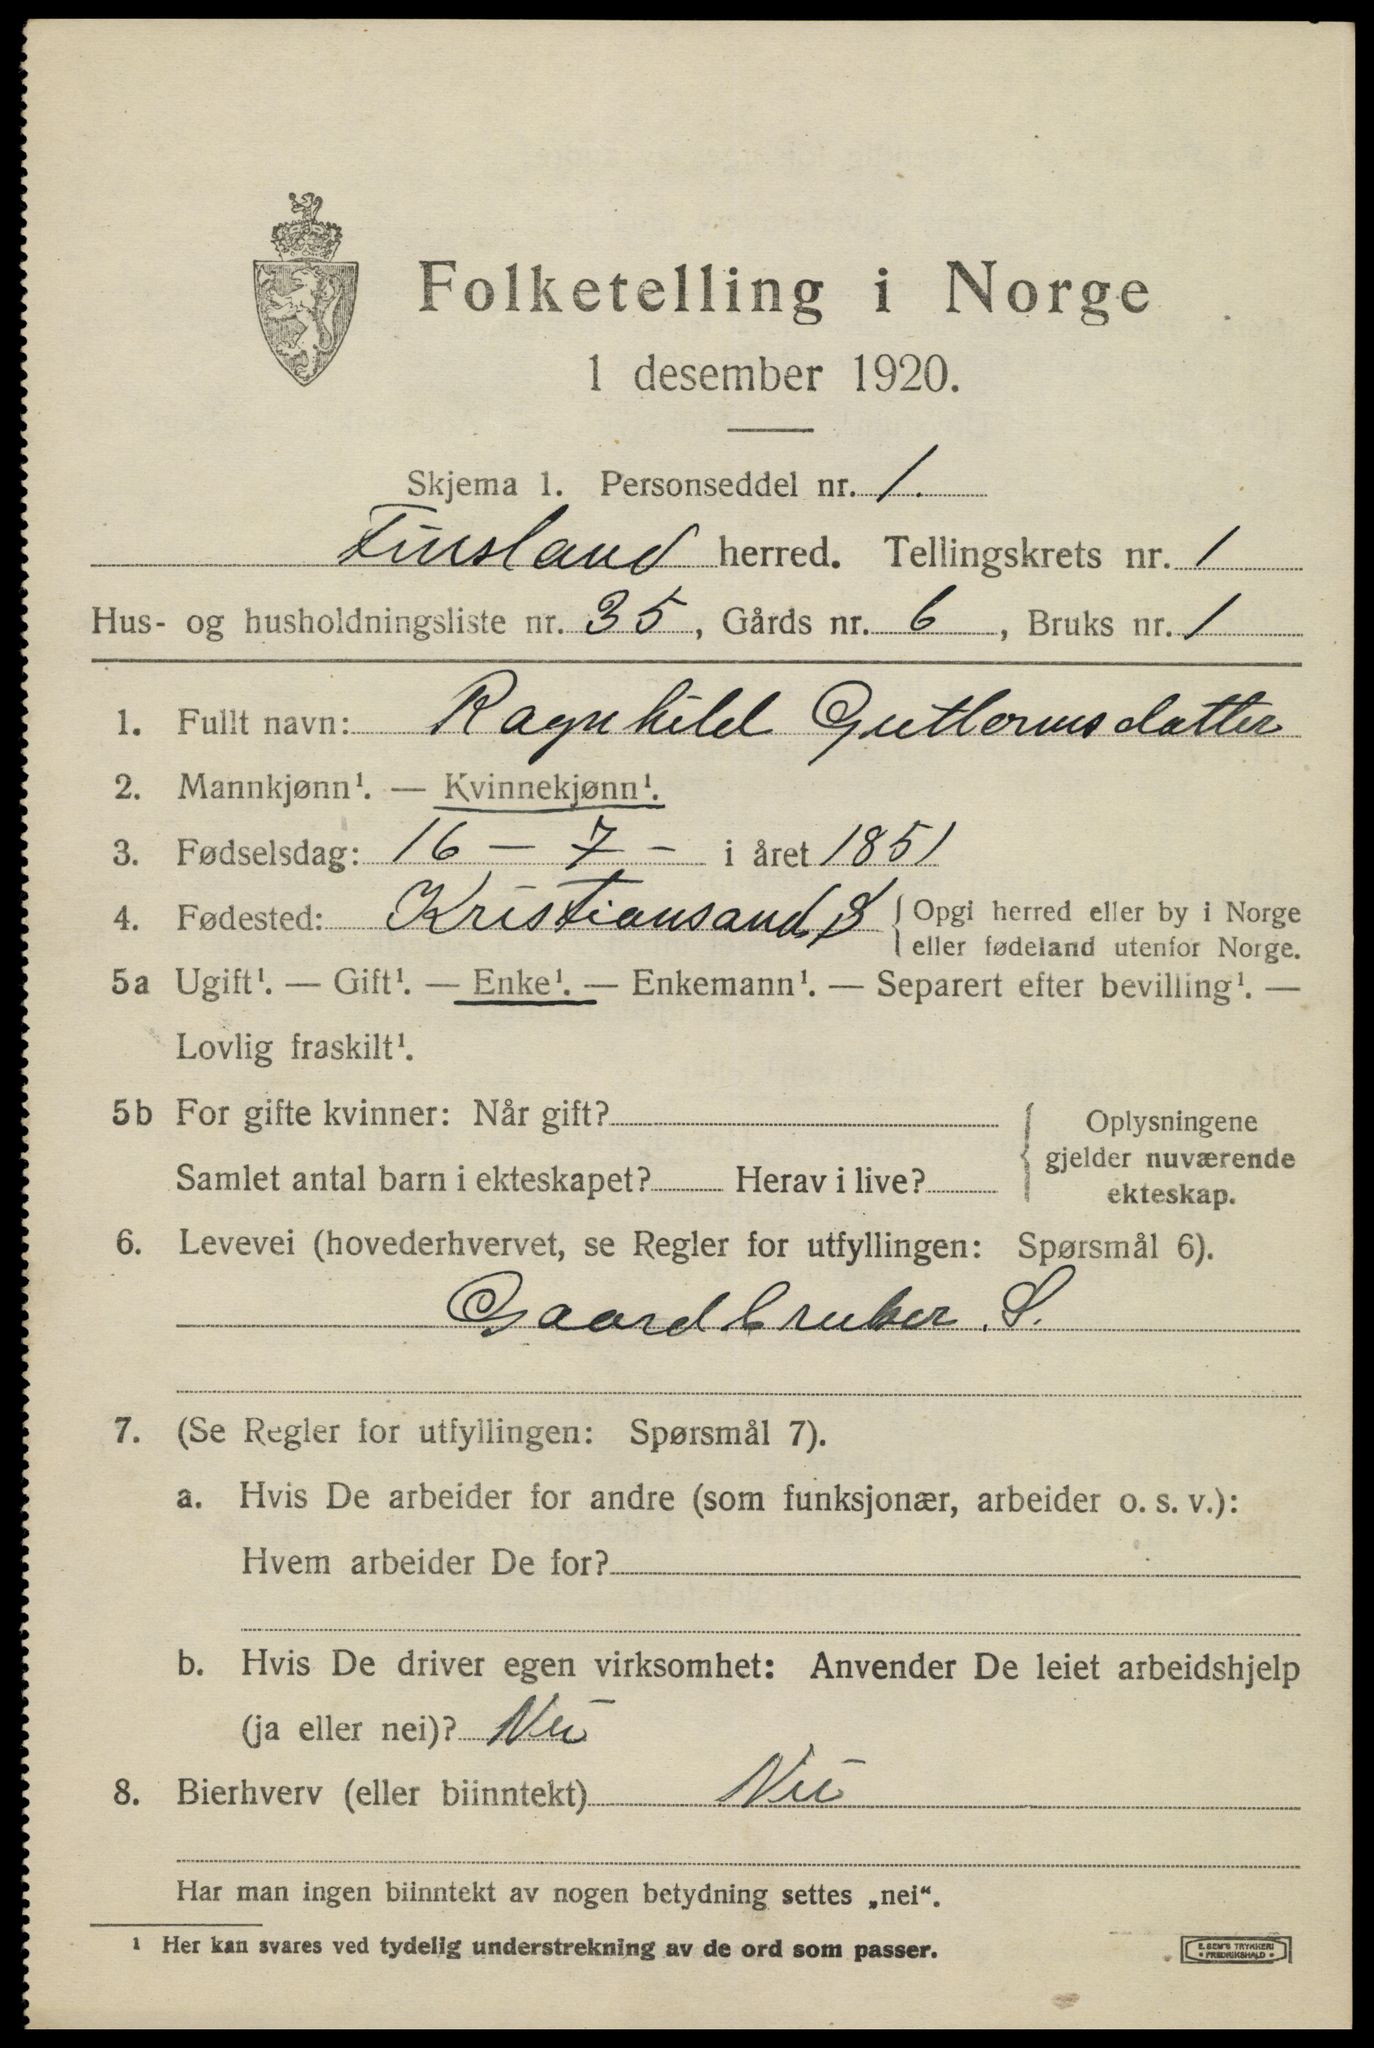 Folketelling i Norge
1 desember 1920.
Skjema 1. Personseddel nr. 1.
Finsland herred. Tellingskrets nr. 1
Hus- og husholdningsliste nr. 35, Gårds nr. 6, Bruks nr. 1
1. Fullt navn: Ragnhild Guttormsdatter
2. Mannkjønn¹. — Kvinnekjønn¹.
3. Fødselsdag: 16 - 7 - i året 1851
4. Fødested: Kristiansand S { Opgi herred eller by i Norge
eller fødeland utenfor Norge.
5a Ugift¹. — Gift¹. — Enke¹. — Enkemann¹. — Separert efter bevilling¹. —
Lovlig fraskilt¹.
5b For gifte kvinner: Når gift? { Oplysningene
gjelder nuværende
Samlet antal barn i ekteskapet? Herav i live? ekteskap.
6. Levevei (hovederhvervet, se Regler for utfyllingen: Spørsmål 6).
Gaardbruker. S.
7. (Se Regler for utfyllingen: Spørsmål 7).
a. Hvis De arbeider for andre (som funksjonær, arbeider o. s. v.):
Hvem arbeider De for?
b. Hvis De driver egen virksomhet: Anvender De leiet arbeidshjelp
(ja eller nei)? Nei
8. Bierhverv (eller biinntekt) Nei
Har man ingen biinntekt av nogen betydning settes „nei“.
¹ Her kan svares ved tydelig understrekning av de ord som passer.
E. SEM'S TRYKKERI
• FREDRIKSHALD •